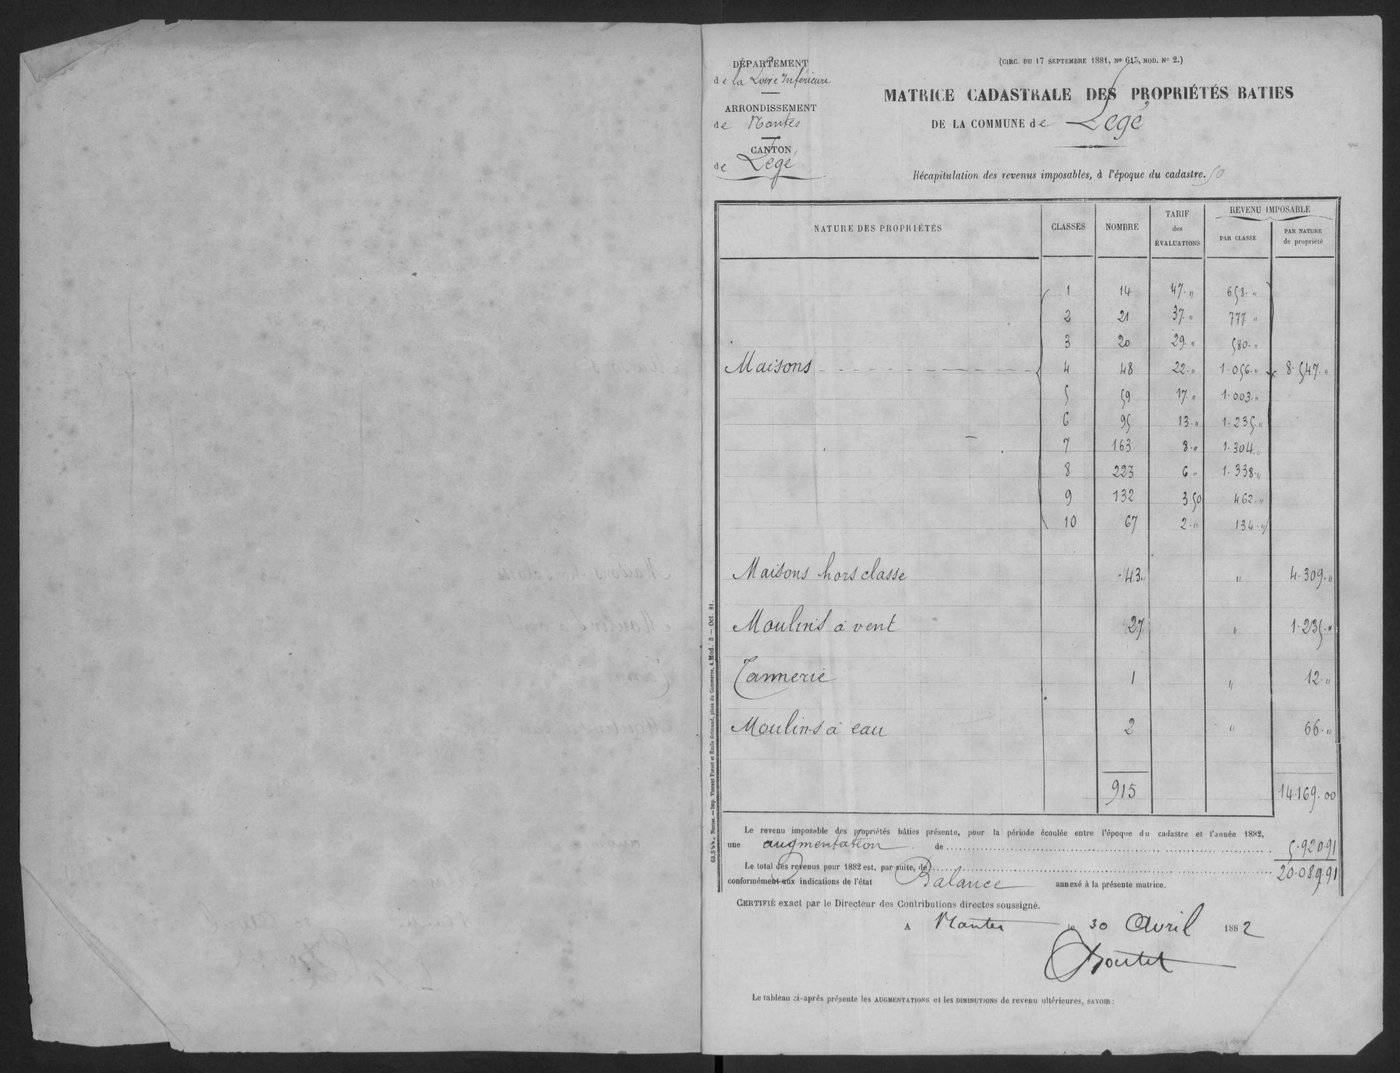 DÉPARTEMENT
de la Loire Inférieure
ARRONDISSEMENT
de Nantes
CANTON
de Légé
(CIRC. DU 17 SEPTEMBRE 1881, No 615, MOD. No 2.)
MATRICE CADASTRALE DES PROPRIÉTÉS BATIES
DE LA COMMUNE de Légé
Récapitulation des revenus imposables, à l'époque du cadastre.
NATURE DES PROPRIÉTÉS CLASSES NOMBRE TARIF des ÉVALUATIONS REVENU IMPOSABLE
PAR CLASSE PAR NATURE de propriété
1 14 47 " 658 "
2 21 37 " 777 "
3 20 29 " 580 "
Maisons 4 48 22 " 1.056 " 8.547 "
5 59 17 " 1.003 "
6 95 13 " 1.235 "
7 163 8 " 1.304 "
8 223 6 " 1.338 "
9 132 3 50 462 "
10 67 2 " 134 "
Maisons hors classe 43 " 4.309 "
Moulins à vent 27 " 1.235 "
Tannerie 1 " 12 "
Moulins à eau 2 " 66 "
915 14.169.00
Le revenu imposable des propriétés bâties présente, pour la période écoulée entre l'époque du cadastre et l'année 1882,
une augmentation de 5.920 91
Le total des revenus pour 1882 est, par suite, de 20.089 91
conformément aux indications de l'état Balance annexé à la présente matrice.
CERTIFIÉ exact par le Directeur des Contributions directes soussigné.
A Nantes le 30 Avril 1882
Le tableau ci-après présente les AUGMENTATIONS et les DIMINUTIONS de revenu ultérieures, SAVOIR :